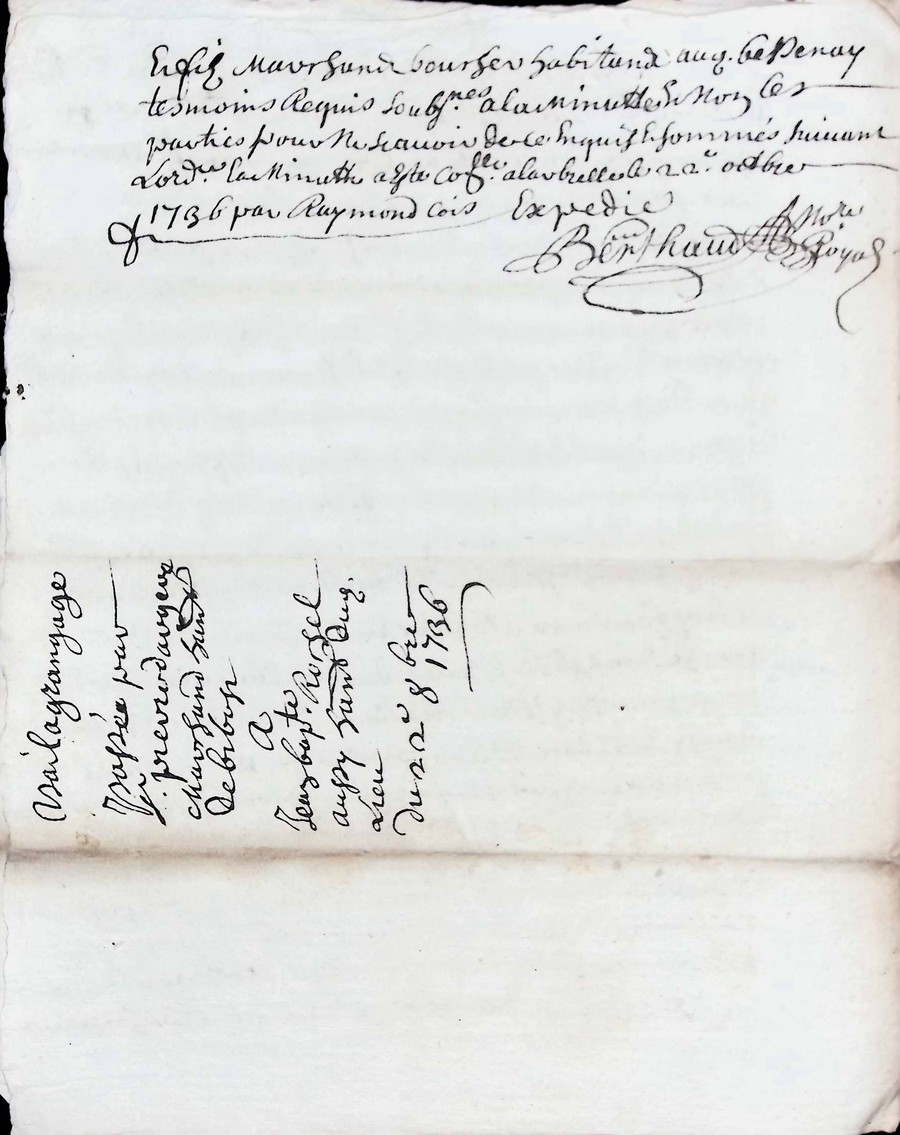 et fils marchand boucher habitand aud. be Penay
tesmoins Requis soubs.nes a la minutte Et Non les
parties pour Ne scavoir de ce Enquis Et sommés suivant
Lord.ce la Minutte a Este Co.lle a larbrelle le 22.e octbre
1736 par Raymond cois Expedié
Berthaud Nore Royal
Bail a grangage
Passée par
pierre
marchand
de bibost
A
Jean bapte
aussy dud.
Lieu
du 22e 8bre
1736